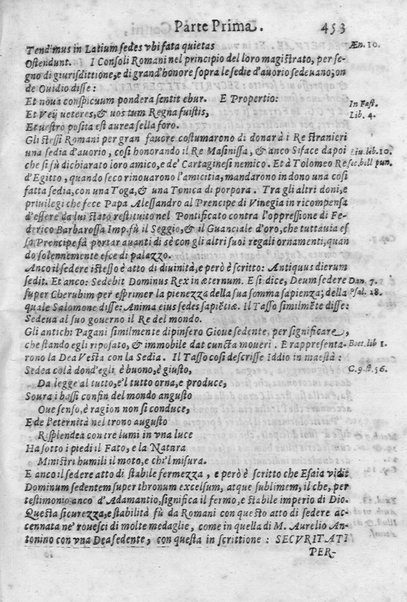 Parte Prima. 453
Tendimus in Latium sedes vbi fata quietas Æn. 10.
Ostendunt. I Consoli Romani nel principio del loro magistrato, per se-
gno di giurisdittione, e di grand'honore sopra le sedie d'auorio sedeuano; on
de Ouidio disse:
Et noua conspicuum pondera sentit ebur. E Propertio: In Fast.
Et Veÿ veteres, & uos tum Regna fuistis, Lib. 4.
Et uestro posita est aurea sella foro.
Gli stessi Romani per gran fauore costumarono di donar à i Re stranieri
una sedia d'auorio, così honorando il Re Masinissa, & anco Siface dapoi Liu. lib. 10.
che si fù dichiarato loro amico, e de' Cartaginesi nemico. Et à Tolomeo Re sec. bill pun.
d'Egitto, quando seco rinouarono l'amicitia, mandarono in dono una così
fatta sedia, con una Toga, & una Tonica di porpora. Tra gli altri doni, e
priuilegi che fece Papa Alessandro al Prencipe di Vinegia in ricompensa
d'essere da lui stato restituito nel Pontificato contra l'oppressione di Fe-
derico Barbarossa Imp. fù il Seggio, & il Guanciale d'oro, che tuttauia es
so Prencipe fà portar auanti di sè con gli altri suoi regali ornamenti, quan
do solennemente esce di palazzo.
Anco il sedere istesso è atto di diuinità, e però è scritto: Antiquus dierum
sedit. Et anco: Sedebit Dominus Rex in æternum. E si dice, Deum sedere Dan. 7.
super Cherubim per esprimer la pienezza della sua somma sapienza; della Psal. 28.
quale Salomone disse: Anima eius sedes sapiẽtiæ. Il Tasso similmẽte disse:
Sedena al suo gouerno il Re del mondo.
Gli antichi Pagani similmente dipinsero Gioue sedente, per significare,
che stando egli riposato, & immobile dat cuncta moueri. E rappresenta- Boet. lib 1.
rono la Dea Vesta con la Sedia. Il Tasso così descrisse Iddio in maestà:
Sedea colà dond'egli, è buono, è giusto, C. 9. st. 56.
Da legge al tutto, e'l tutto orna, e produce,
Soura i bassi confin del mondo angusto
Oue senso, è ragion non si conduce,
E de l'eternità nel trono augusto
Risplendea con tre lumi in vna luce
Hà sotto i piedi il Fato, e la Natura
Ministri humili il moto, e ch'l misura.
E anco il sedere atto di stabile fermezza, e però è scritto che Esaia vidit
Dominum sedentem super thronum excelsum, atque sublimem, il che, per
testimonio anco d'Adamantio, significa il fermo, e stabile imperio di Dio.
Questa sicurezza, e stabilità fù da Romani con questo atto di sedere ac-
cennata nè rouesci di molte medaglie, come in quella di M. Aurelio An-
tonino con vna Dea sedente, con questa in scrittione: SECVRITATI
PER-